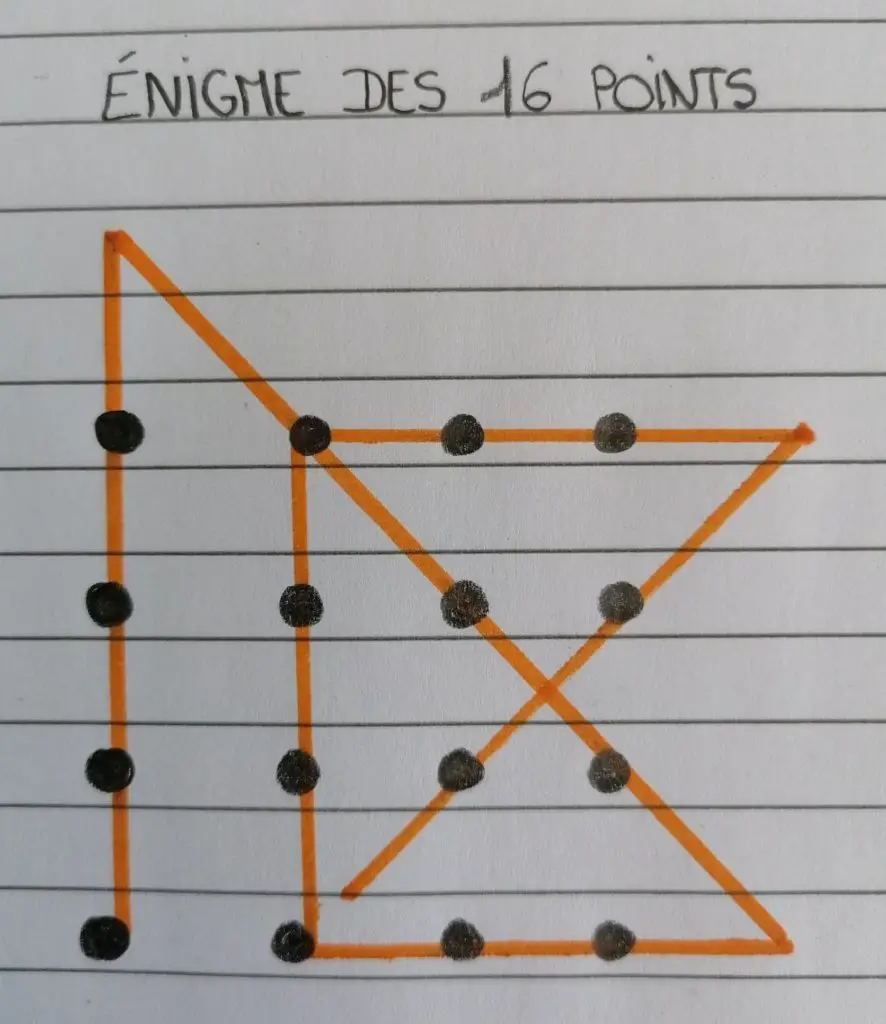 ÉNiGME DES 16 POiNTS